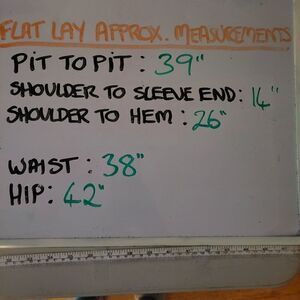 FLAT LAY APPROX. MEASUREMENTS
PIT TO PIT : 39"
SHOULDER TO SLEEVE END: 14"
SHOULDER TO HEM : 26"
WAIST : 38"
HIP: 42"